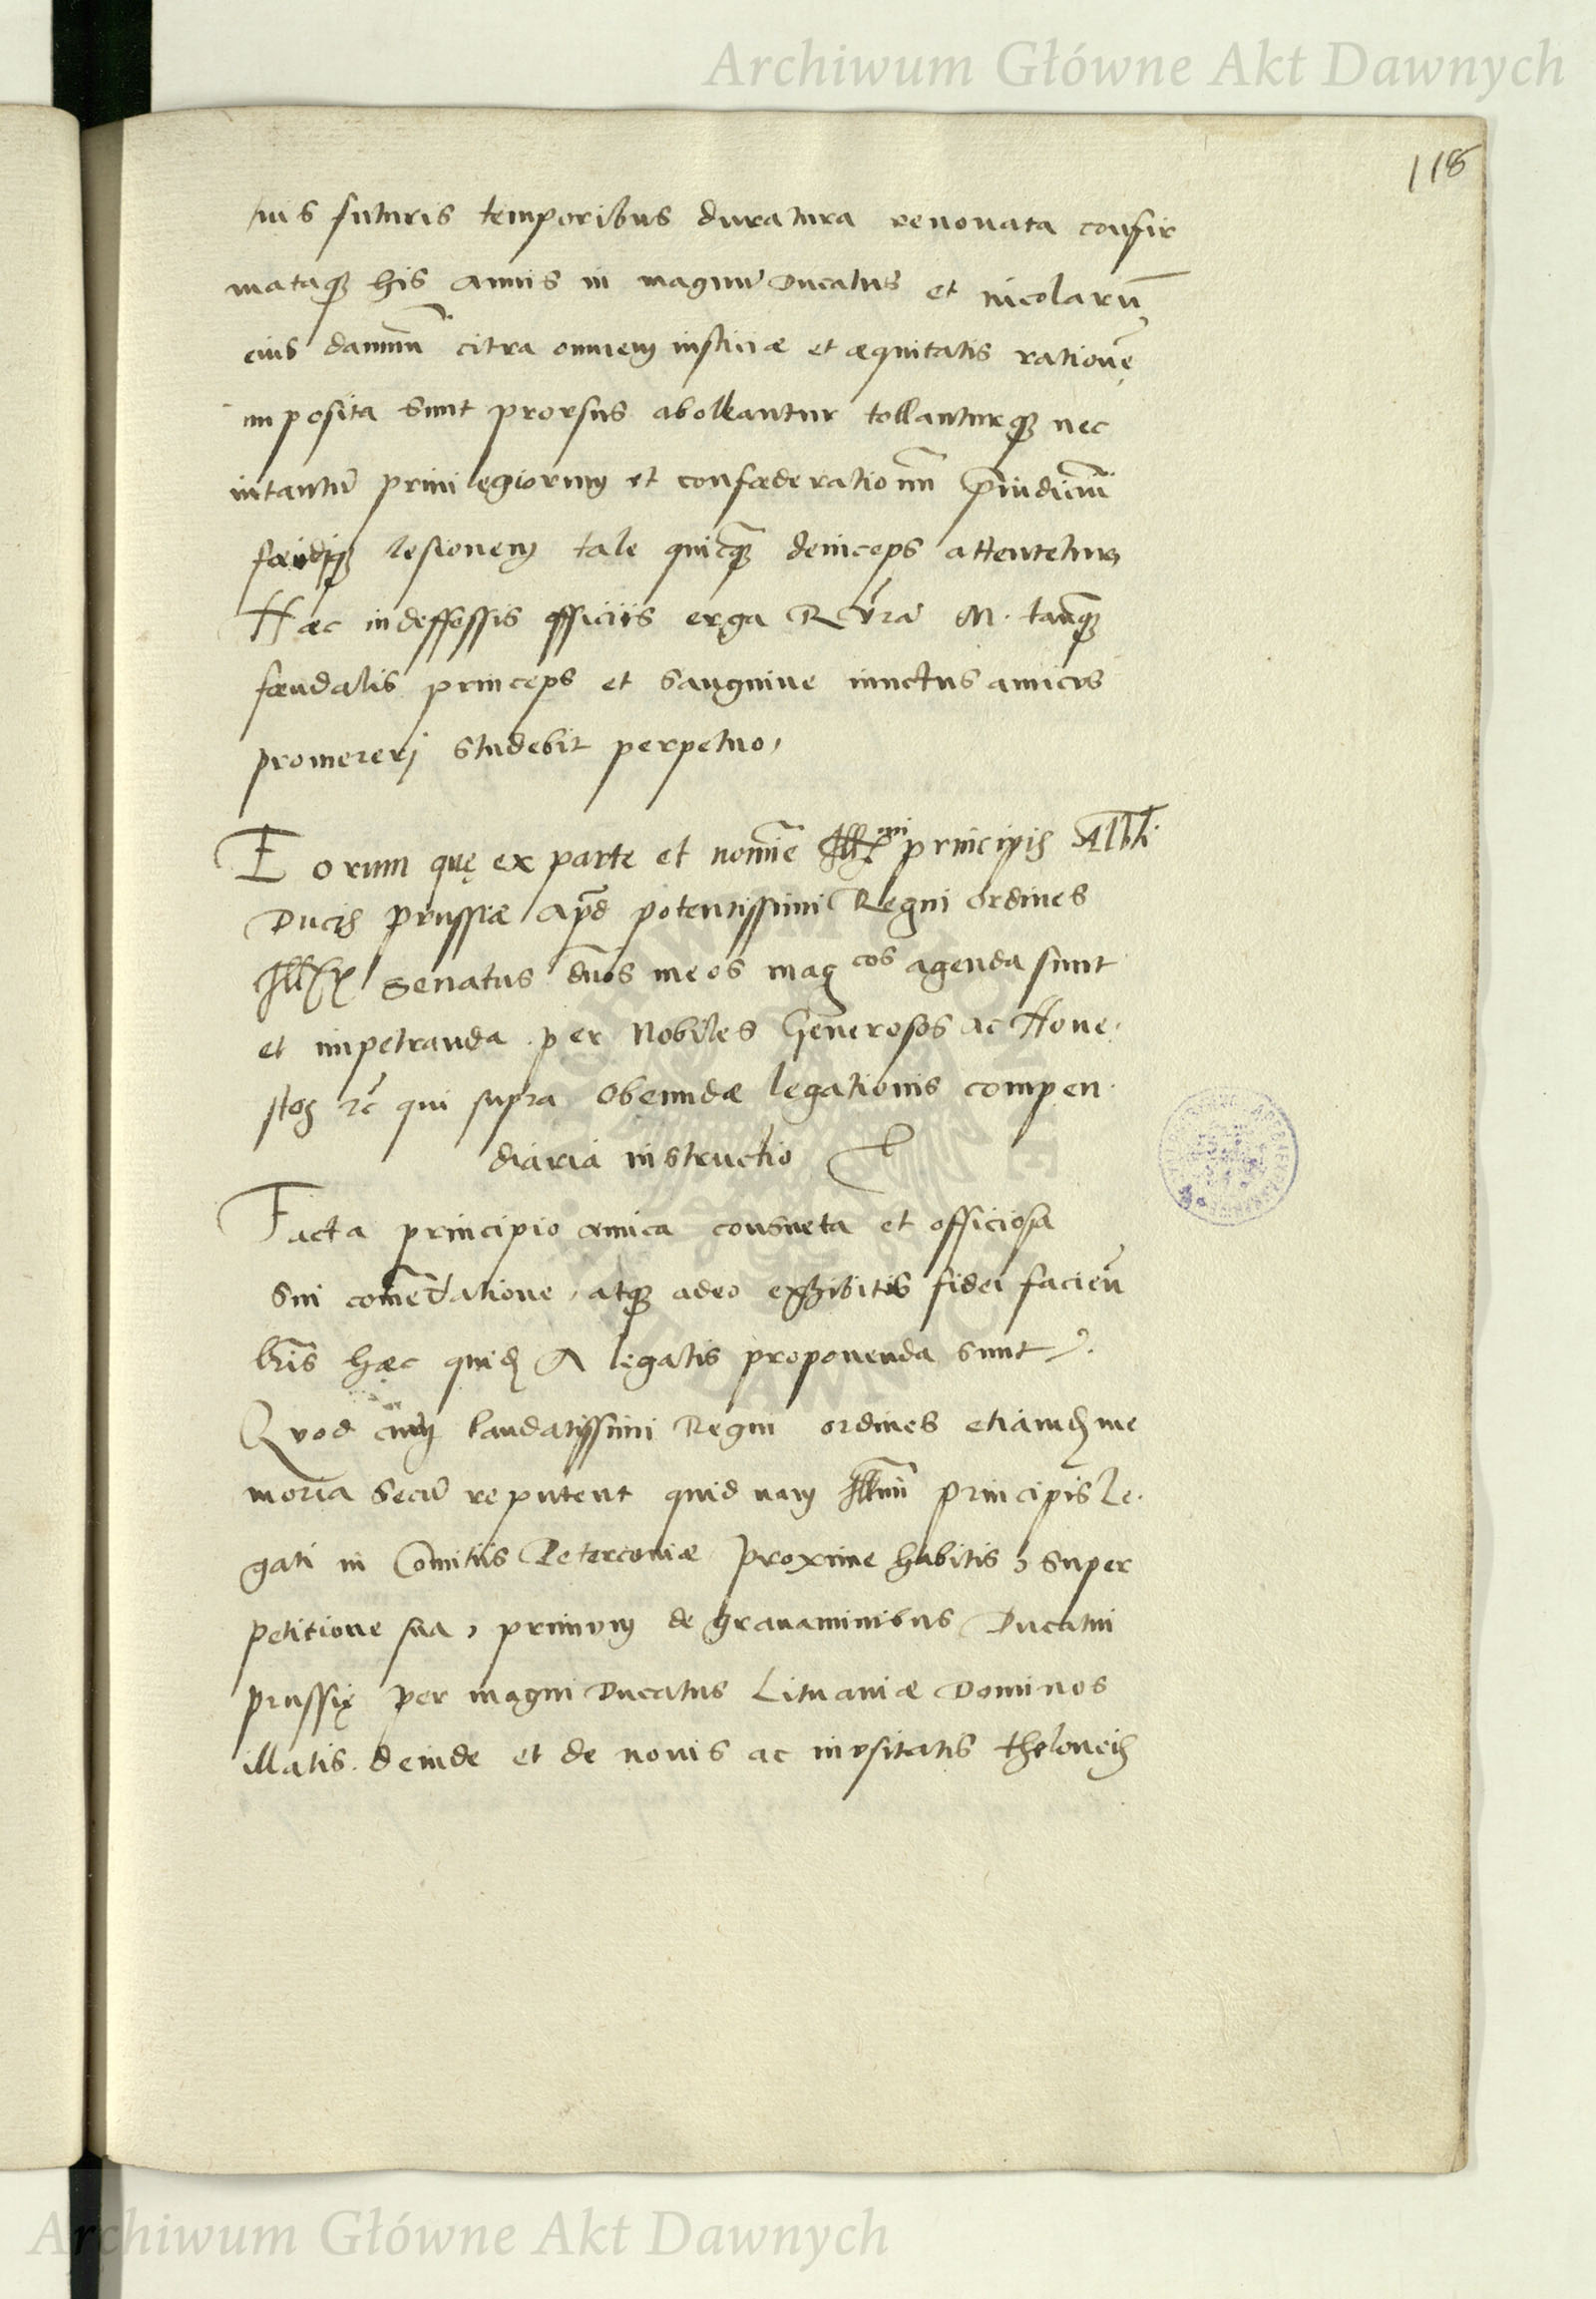 Archiwum Główne Akt Dawnych
118
nis futuris temporibus duratura renouata confir
mataq3 his annis in magnū Ducatus et incolarū
eius damnū citra omnem iustitiæ et æquitatis rationē
imposita sunt prorsus aboleantur tollanturq3 nec
in tantū priuilegiorum et confæderationū p̄iudiciū
lesionem tale quicq̄3 deinceps attentetur
Hæc indeffessis officiis erga R. Vrā M. tanq̄3
fæudalis princeps et sanguine iunctus amicus
promererj studebit perpetuo,
Eorum quę ex parte et nomīe Ill principis Alb̄ti
Ducis Prussiæ apd̄ potentissimi Regni ordines
Senatus dn̄os meos mag cos agenda sunt
et impetranda per Nobiles Generosos ac Hone
stos rc̄ qui supra obeundæ legationis compen
diaria instructio
Facta principio amica consueta et officiosa
sui comēdatione, atq3 adeo exhibitis fidei faciēn
lr̄is hæc quid A legatis proponenda sunt
Quod cum laudatissimi Regni ordines etiam me
moria secū reputent quid nam Illm̄i Principis Le
gati in Comitiis Peterconiæ proxime habitis, super
petitione sua, primum de grauaminibus Ducatui
Prussię per magni Ducatus Lituaniæ Dominos
illatis. deinde et de nouis ac inusitatis theloneis
Archiwum Główne Akt Dawnych